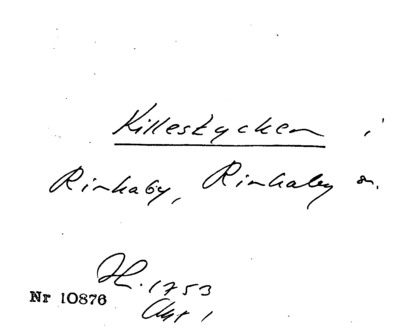 Killestycken i
Rinkaby, Rinkaby s.
H. 1753
Nr 10876
Akt 1